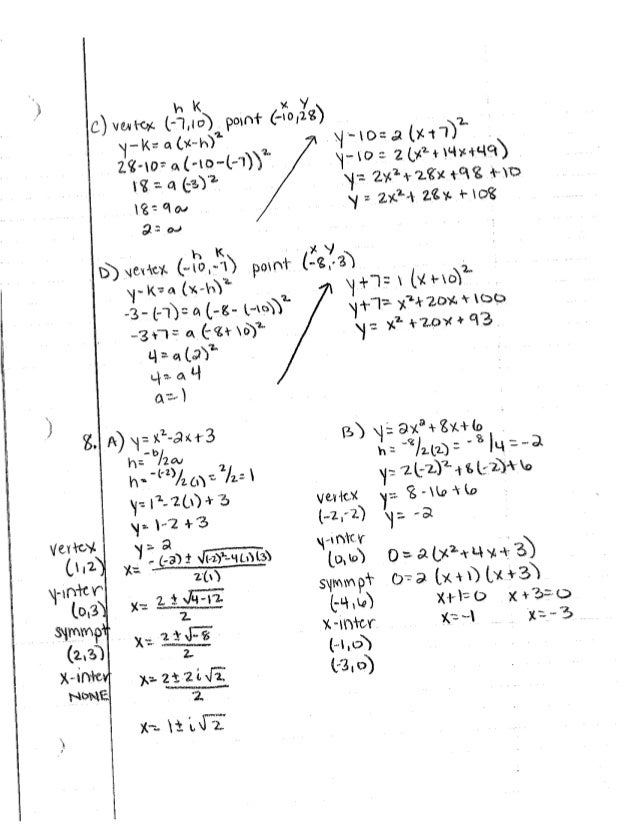 h k x y
C) vertex (-7,10) point (-10,28)
y-k=a(x-h)²
28-10=a(-10-(-7))²
18=a(-3)²
18=9a
2=a
y-10=2(x+7)²
y-10=2(x²+14x+49)
y=2x²+28x+98+10
y=2x²+28x+108
h k x y
D) vertex (-10,-7) point (-8,-3)
y-k=a(x-h)²
-3-(-7)=a(-8-(-10))²
-3+7=a(-8+10)²
4=a(2)²
4=a4
a=1
y+7=1(x+10)²
y+7=x²+20x+100
y=x²+20x+93
8. A) y=x²-2x+3
h=-b/2a
h=-(-2)/2(1)=2/2=1
y=1²-2(1)+3
y=1-2+3
y=2
x=-(-2)±√(-2)²-4(1)(3)/2(1)
x=2±√4-12/2
x=2±√-8/2
x=2±2i√2/2
x=1±i√2
vertex
(1,2)
y-inter
(0,3)
symmpt
(2,3)
x-inter
NONE
B) y=2x²+8x+6
h=-8/2(2)=-8/4=-2
y=2(-2)²+8(-2)+6
y=8-16+6
y=-2
vertex
(-2,-2)
y-inter
(0,6)
symmpt
(-4,6)
x-inter
(-1,0)
(-3,0)
0=2(x²+4x+3)
0=2(x+1)(x+3)
x+1=0 x+3=0
x=-1 x=-3